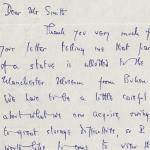 Dear Mr Smith
Thank you very much f
your letter telling me that par
of a statue is allotted to the
Manchester Museum from Buhen.
We have to be a little careful
about what we now acquire, owing
to great storage difficulties, so I
would like to come to view th